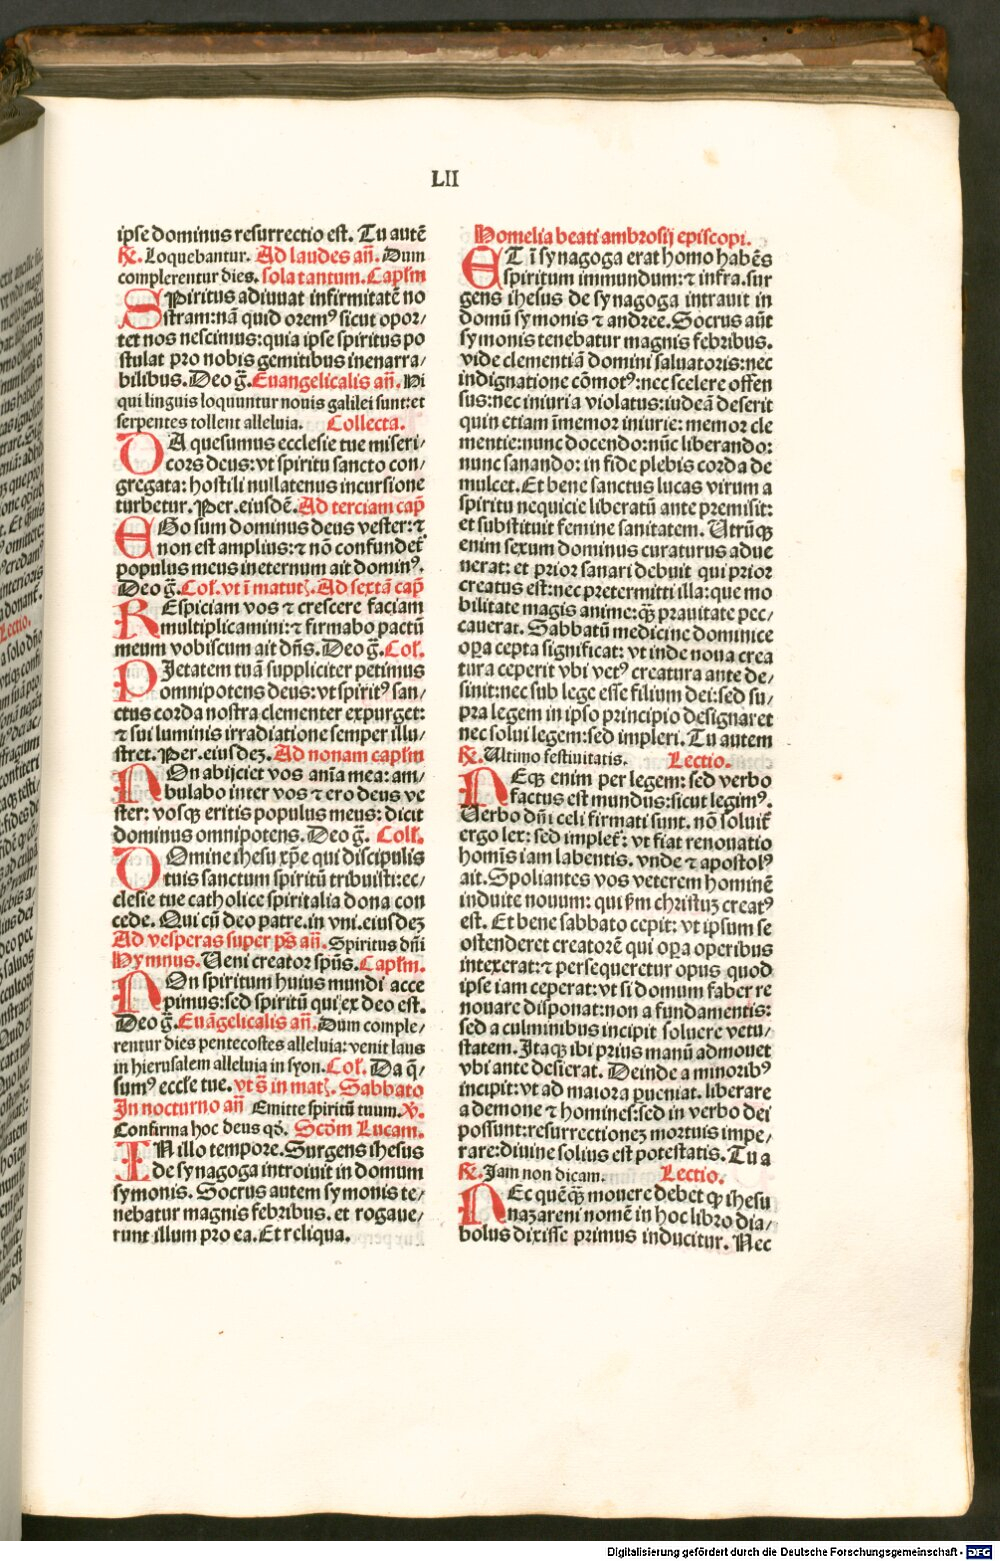 LII
ipse dominus resurrectio est. Tu autē
℟. Loquebantur. Ad laudes añ. Dum
complerentur dies. sola tantum. Caplm̄
SPiritus adiuuat infirmitatē no
stram: nā quid oremꝰ sicut opor/
tet nos nescimus: quia ipse spiritus po
stulat pro nobis gemitibus inenarra/
bilibus. Deo g̃. Euangelicalis añ. Ni
qui linguis loquuntur nouis galilei sunt: et
serpentes tollent alleluia. Collecta.
DA quesumus ecclesie tue miseri/
cors deus: vt spiritu sancto con/
gregata: hostili nullatenus incursione
turbetur. Per. eiusdē. Ad terciam cap̄
EGo sum dominus deus vester: ⁊
non est amplius: ⁊ nō confundet̄
populus meus ineternum ait dominꝰ.
Deo g̃. Col̄. vt ī matut̄. Ad sextā cap̄
REspiciam vos ⁊ crescere faciam
multiplicamini: ⁊ firmabo pactū
meum vobiscum ait dn̄s. Deo g̃. Col̄.
PIetatem tuā suppliciter petimus
omnipotens deus: vt spiritꝰ san/
ctus corda nostra clementer expurget:
⁊ sui luminis irradiatione semper illu/
stret. Per. eiusdez. Ad nonam caplm̄
NOn abijciet vos anīa mea: am/
bulabo inter vos ⁊ ero deus ve
ster: vosqꝫ eritis populus meus: dicit
dominus omnipotens. Deo g̃. Coll̄.
DOmine ihesu xp̄e qui discipulis
tuis sanctum spiritū tribuisti: ec/
clesie tue catholice spiritalia dona con
cede. Qui cū deo patre. in vni. eiusdez
Ad vesperas super ps̄ añ. Spiritus dn̄i
Hymnus. Ueni creator spūs. Caplm̄.
NOn spiritum huius mundi acce
pimus: sed spiritū qui ex deo est.
Deo g̃. Euāgelicalis añ. Dum comple/
rentur dies pentecostes alleluia: venit laus
in hierusalem alleluia in syon. Col̄. Da q̄/
sumꝰ eccl̄e tue. vt s̄ in mat̄. Sabbato
In nocturno añ Emitte spiritū tuum. ℣.
Confirma hoc deus qd̄. Scd̄m Lucam.
IN illo tempore. Surgens ihesus
de synagoga introiuit in domum
symonis. Socrus autem symonis te/
nebatur magnis febribus. et rogaue/
runt illum pro ea. Et reliqua.
Homelia beati ambrosij episcopi.
ET ī synagoga erat homo habēs
spiritum immundum: ⁊ infra. sur
gens ihesus de synagoga intrauit in
domū symonis ⁊ andree. Socrus aūt
symonis tenebatur magnis febribus.
vide clementiā domini saluatoris: nec
indignatione cōmotꝰ: nec scelere offen
sus: nec iniuria violatus: iudeā deserit
quin etiam īmemor iniurie: memor cle
mentie: nunc docendo: nūc liberando:
nunc sanando: in fide plebis corda de
mulcet. Et bene sanctus lucas virum a
spiritu nequicie liberatū ante premisit:
et substituit femine sanitatem. Utrūqꝫ
enim sexum dominus curaturus adue
nerat: et prior sanari debuit qui prior
creatus est: nec pretermitti illa: que mo
bilitate magis anime: qꝫ̄ prauitate pec/
cauerat. Sabbatū medicine dominice
oꝑa cepta significat: vt inde noua crea
tura ceperit vbi vetꝰ creatura ante de/
sinit: nec sub lege esse filium dei: sed su/
pra legem in ipso principio designaret
nec solui legem: sed impleri. Tu autem
℟. Ultimo festiuitatis. Lectio.
NEqꝫ enim per legem: sed verbo
factus est mundus: sicut legimꝰ.
Uerbo dn̄i celi firmati sunt. nō soluit̄
ergo lex: sed implet̄: vt fiat renouatio
homīs iam labentis. vnde ⁊ apostolꝰ
ait. Spoliantes vos veterem hominē
induite nouum: qui s̄m christuz creatꝰ
est. Et bene sabbato cepit: vt ipsum se
ostenderet creatorē qui oꝑa operibus
intexerat: ⁊ persequeretur opus quod
ipse iam ceperat: vt si domum faber re
nouare disponat: non a fundamentis:
sed a culminibus incipit soluere vetu/
statem. Itaqꝫ ibi prius manū admouet
vbi ante desierat. Deinde a minoribꝰ
incipit: vt ad maiora pueniat. liberare
a demone ⁊ homines: sed in verbo dei
possunt: resurrectionez mortuis impe/
rare: diuine solius est potestatis. Tu a
℟. Iam non dicam. Lectio.
NEc quēqꝫ̄ mouere debet ꝙ ihesu
nazareni nomē in hoc libro dia/
bolus dixisse primus inducitur. Nec
Digitalisierung gefördert durch die Deutsche Forschungsgemeinschaft - DFG